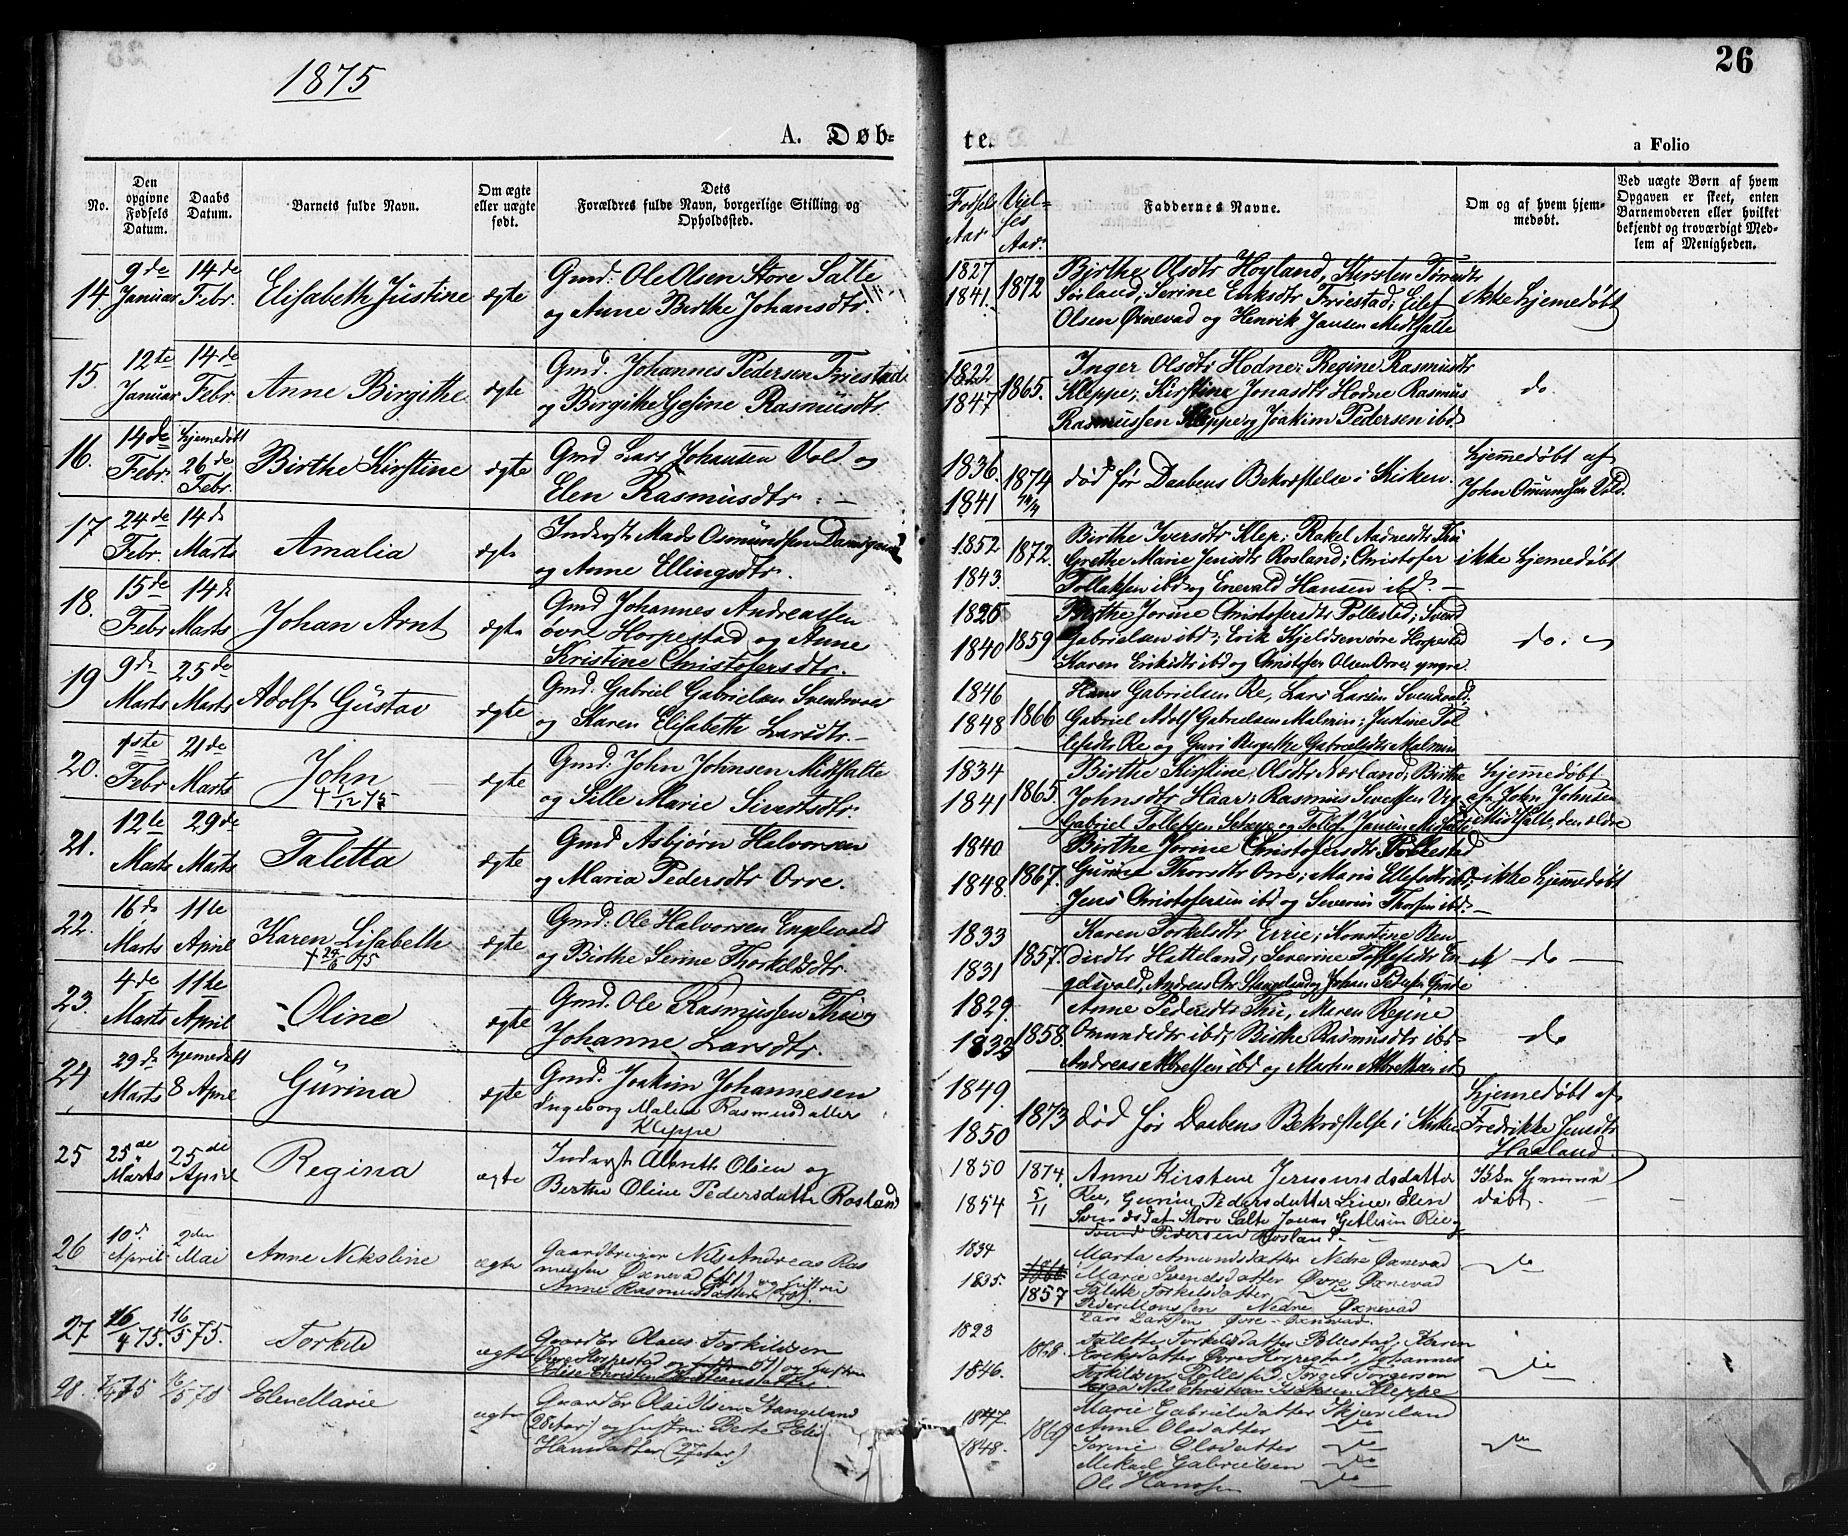 1875
26
A. Døb-
te.
a Folio
No.
Den opgivne Fødsels Datum.
Daabs Datum.
Barnets fulde Navn.
Om ægte eller uægte født.
Dets Forældres fulde Navn, borgerlige Stilling og Opholdssted.
Fødsels Aar
Viel-ses Aar.
Faddernes Navne.
Om og af hvem hjem-medøbt.
Ved uægte Børn af hvem Opgaven er skeet, enten Barnemoderen eller hvilket bekjendt og troværdigt Med-lem af Menigheden.
14 9de Januar 14de Febr. Elisabeth Justine ægte
Gmd: Ole Olsen Store Salte
og Anne Birthe Johansdtr.
1827 1841. 1872
Birthe Olsdtr Hoyland, Kirsten
Sørland; Serine Eriksdtr Friestad; Eilef
Olsen Øxnevad og Henrik Jansen Midtsalte
ikke hjemedøbt
15 12te Januar 14de Febr Anne Birgithe ægte
Gmd. Johannes Pedersen Friestad
og Birgithe Gesine Rasmusdtr
1822 1847 1865.
Inger Olsdtr Hodne; Regine Rasmusdtr
Kleppe; Kirstine Jonasdtr Hodne Rasmus
Rasmussen Kleppe og Joakim Pedersen ibd.
do.
16. 14de Febr. Hjemedøbt 26de Febr. Birthe Kirstine ægte
Gmd Lars Johansen Vold og
Elen Rasmusdtr. —
1836. 1841 1874
død før Daabens Bekræftelse i Kirken.
Hjemmedøbt af
John Omundsen Vold.
17 24de Febr. 14d Marts Amalia ægte
Inderst Mads Osmundsen
og Anne Ellingsdtr.
1852 1843. 1872.
Birthe Iversdtr Klep; Rakel Aadnesdtr
Grethe Marie Jensdtr Rosland; Christofer
Tollaksen ibd og Enevald Hansen ibd. —
ikke hjemedøbt
18. 15de Febr 14d Marts Johan Arnt ægte
Gmd Johannes Andreassen
øvre Horpestad og Anne
Kristine Christofersdtr.
1826 1840 1859
Birthe Jorine Christofersdtr Pollestad; Svend
Gabrielsen ibd; Erik Kjeldsen øvre Horpestad
Karen Eriksdtr ibd og Christofer Olsen Orre, yngre.
do.
19 9de Marts 25de Marts Adolf Gustav ægte
Gmd: Gabriel Gabrielsen
og Karen Elisabeth Larsdtr. —
1846 1848 1866
Hans Gabrielsen Re, Lars Larsen
Gabriel Adolf Gabrielsen Malmin; Justine Tol-
lefsdtr Re og Guri Birgithe Gabrielsdtr Malmin
20. 1ste Febr 21de Marts John ægte
Gmd: John Johnsen Midtsalte
og Sille Marie Sivertsdtr.
1834 1841 1865.
Birthe Kirstine Olsdtr Nærland; Birthe
Johnsdtr Haar; Rasmus
Gabriel Tollefsen
Hjemmedøbt
af John Johnsen
Midtsalte, den ældre
21. 12te Marts 29de Marts Taletta ægte
Gmd Asbjørn Halvorsen
og Maria Pedersdtr Orre.
1840. 1848. 1867.
Birthe Jorine Christofersdtr Pollestad
Thorsdtr Orre; Maria
Jens Christofersen ibd og Severin Thorsen ibd. —
ikke hjemedøbt
22. 16d Marts 11te April Karen Lisabeth ægte
Gmd: Ole Halvorsen Engelsvold
og Birthe Serine Thorkildsdtr
1833 1831 1857.
Karen Torkelsdtr Errie; Konstine Ben-
dixdtr Hatteland; Severine Tollefsdtr En-
gelsvold, Andreas
do
23. 4de Marts 11te April Oline ægte
Gmd: Ole Rasmussen Thu og
Johanne Larsdtr.
1829. 1832 1858.
Anne Pedersdtr Thu, Maren Regine
Omundsdtr ibd; Birthe Rasmusdtr ibd
Andreas Albretsen ibd og Martin
do
24 29d Marts Hjemedøbt 8 April Gurina ægte
Gmd. Joakim Johannesen
Ingeborg Malene Rasmusdatter
Kleppe
1849. 1850 1873
død før Daabens Bekræftelse i Kirken
Hjemedøbt af
Fredrikke Jensdtr
Haaland.
25 25de Marts 25de April Regina ægte
Inderst Albreth Olsen og
Berthe Oline Pedersdatter Rosland
1850 1854 1874. 5/11
Anne Kirstene
Re, Gurine Pedersdatter Line, Elen
Svendsdat Store Salte Jonas
Svend Pedersen Rosland —
Ikke hjemme
døbt
26 10d April 2den Mai Anne Nikoline ægte
Gaardbruger Nils Andreas Ras
mussen Øxnevad (41) og hustru
Anne Rasmusdatter
1834 1835. 1857
Marta Amundsdatter Nedre Øxnevad
Marie Svendsdatter Øvre Øxnevad
Talette Torkelsdatter do
Peder Monssen Nedre Øxnevad
Lars Larssen Øvre Øxnevad.
do
27 26/4 75. 16/5 75. Torkild ægte
Gaardbr Olaus Torkildsen
Øvre Horpestad og
1823 1846. 1868.
Talette Torkelsdatter Pollestad, Karen
Eriksdatter Øvre Horpestad, Johannes
Torkildsen
Nils Christian Isaksen Kleppe
do
28. 16/5 75 Elene Marie ægte
Gaardbr Ola Olsen Stangeland
(28 Aar) og hustru Berte Eli
Hansdatter (27 Aar)
1847. 1848. 1869
Marie Gabrielsdatter Skjæveland
Anne Olsdatter do
Serine Olsdatter do
Mikael Gabrielsen do
Ole Hanssen do
do